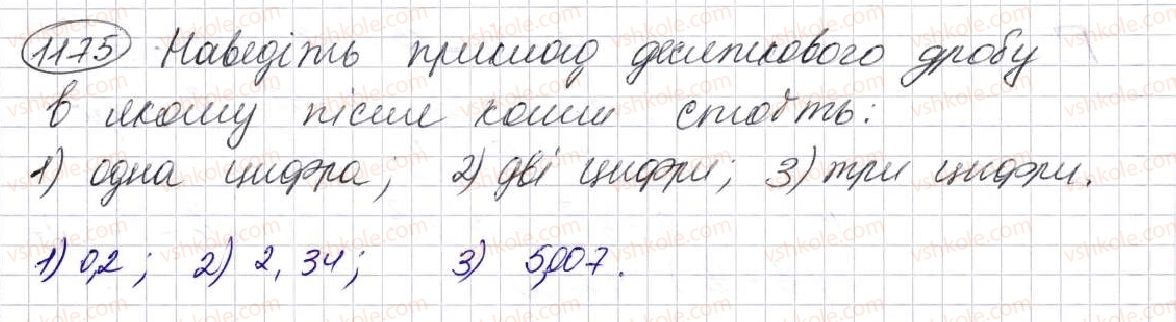 1175 Наведіть приклад десяткового дробу
в якому після коми стоїть:
1) одна цифра; 2) дві цифри; 3) три цифри.
1) 0,2; 2) 2,34; 3) 5,007.